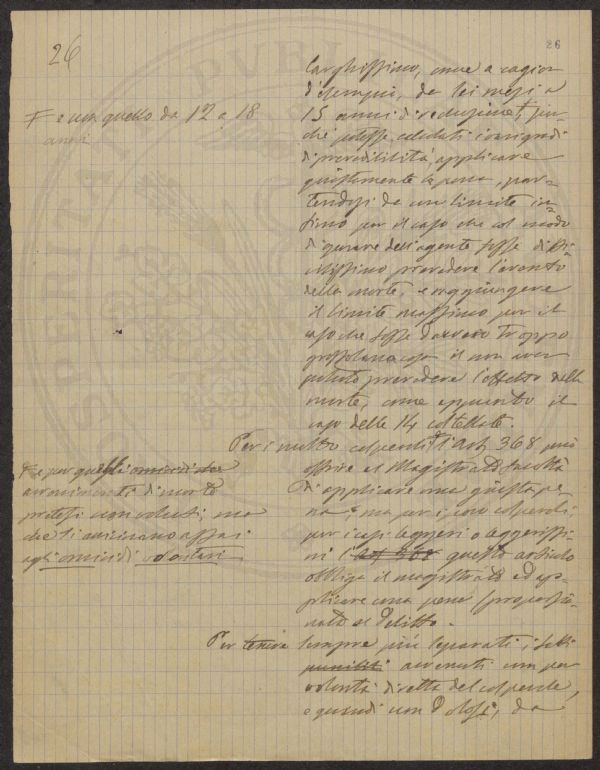 26
26
larghissimo, come a cagion
d'esempio, da sei mesi a
15 anni di reclusione, F
F e con quello da 12 a 18
anni
potesse, calcolati i
di prevedibilità, applicare
giustamente la pena, par-
tendosi da un limite in-
fimo per il caso che col modo
di operare dell'agente fosse diffi-
cilissimo prevedere l'evento
della morte, e raggiungere
il limite massimo per il
caso che fosse davvero troppo
grossolana cosa il non aver
potuto prevedere l'effetto della
morte, come appunto il
caso delle 14 coltellate.
Per i molto colpevoli l'art. 368 può
offrire al Magistrato facoltà
di applicare una giusta pe-
na, ma per i poco colpevoli,
per i casi leggeri o leggerissi-
mi l'art 368 questo articolo
obbliga il magistrato ad ap-
plicare una pena sproporzio-
nata al delitto.
F e per quelli omicidi
avvenimenti di morte
non voluti, ma
che si avvicinano assai
agli omicidi volontari
Per tenere sempre più separati i fatti
punibili avvenuti non per
volontà diretta del colpevole,
e quindi non dolosi, da